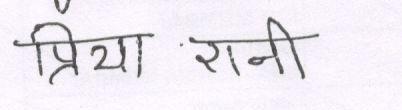 प्रिया रानी